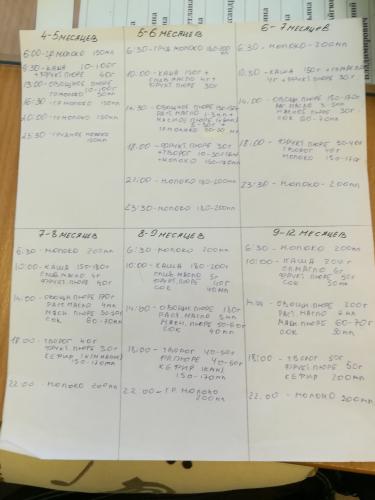 4-5 МЕСЯЦЕВ
6:00 - ГР МОЛОКО 150мл
9:30 - КАША 10-100г
+ ФРУКТ ПЮРЕ 40г
13:00 - ОВОЩНОЕ ПЮРЕ
10-100г
ГР МОЛОКО 50мл
16:30 - ГР МОЛОКО 150мл
20:00 - ГР МОЛОКО 150мл
23:30 - ГРУДНОЕ МОЛОКО
150мл
5-6 МЕСЯЦЕВ
6:30 - ГРУД МОЛОКО
10:00 - КАША 150г +
СЛИВ МАСЛО 4г +
ФРУКТ ПЮРЕ 30г
14:30 - ОВОЩНОЕ ПЮРЕ
РАСТ МАСЛО 1-3мл +
МЯСНОЕ ПЮРЕ
5-30г +
18:00 - ФРУКТ ПЮРЕ 30г
+ ТВОРОГ 10-30г
+ МОЛОКО 150мл
21:00 - МОЛОКО 180-200мл
23:30 - МОЛОКО 180-200мл
6-7 МЕСЯЦЕВ
6:30 - МОЛОКО - 200мл
10:30 - КАША 150г +
4г + ФРУКТ ПЮРЕ 30г
14:00 - ОВОЩИ ПЮРЕ 150-170г
МАСЛО 3
МЯСНОЕ ПЮРЕ 30г
СОК 50-70мл
18:00 - ФРУКТ ПЮРЕ 30-40г
ТВОРОГ 40г
МОЛОКО
23:30 - МОЛОКО - 200мл
7-8 МЕСЯЦЕВ
6:30 - МОЛОКО 200мл
10:00 - КАША 150-180г
СЛИВ МАСЛО 4г
ФРУКТ. ПЮРЕ 40г
14:00 - ОВОЩИ ПЮРЕ 170г
РАСТ МАСЛО 4мл
МЯСН ПЮРЕ 30-50г
СОК 60-70мл
18:00 - ТВОРОГ 40г
ФРУКТ. ПЮРЕ 30г
КЕФИР
150-170мл
22:00 - МОЛОКО 200мл
8-9 МЕСЯЦЕВ
6:30 МОЛОКО 200мл
10:00 - КАША 180-200г
СЛИВ МАСЛО 5г
ФРУКТ ПЮРЕ 40г
СОК 40мл
14:00 - ОВОЩИ ПЮРЕ 180г
РАСТ МАСЛО 5мл
МЯСН. ПЮРЕ 50-60г
СОК 40мл
18:00 - ТВОРОГ 40-50г
ФРУКТ ПЮРЕ 40г
КЕФИР
150-170мл
22:00 - ГР. МОЛОКО
200мл
9-12 МЕСЯЦЕВ
6:30 - МОЛОКО 200мл
10:00 - КАША 200г
СЛ МАСЛО 6г
ФРУКТ ПЮРЕ 50г
СОК 50мл
14:00 - ОВОЩИ ПЮРЕ 200г
РАСТ МАСЛО 6
МЯСН ПЮРЕ 60-70г
СОК 50мл
18:00 - ТВОРОГ 50г
ФРУКТ ПЮРЕ 50г
КЕФИР 200мл
22:00 - МОЛОКО 200мл